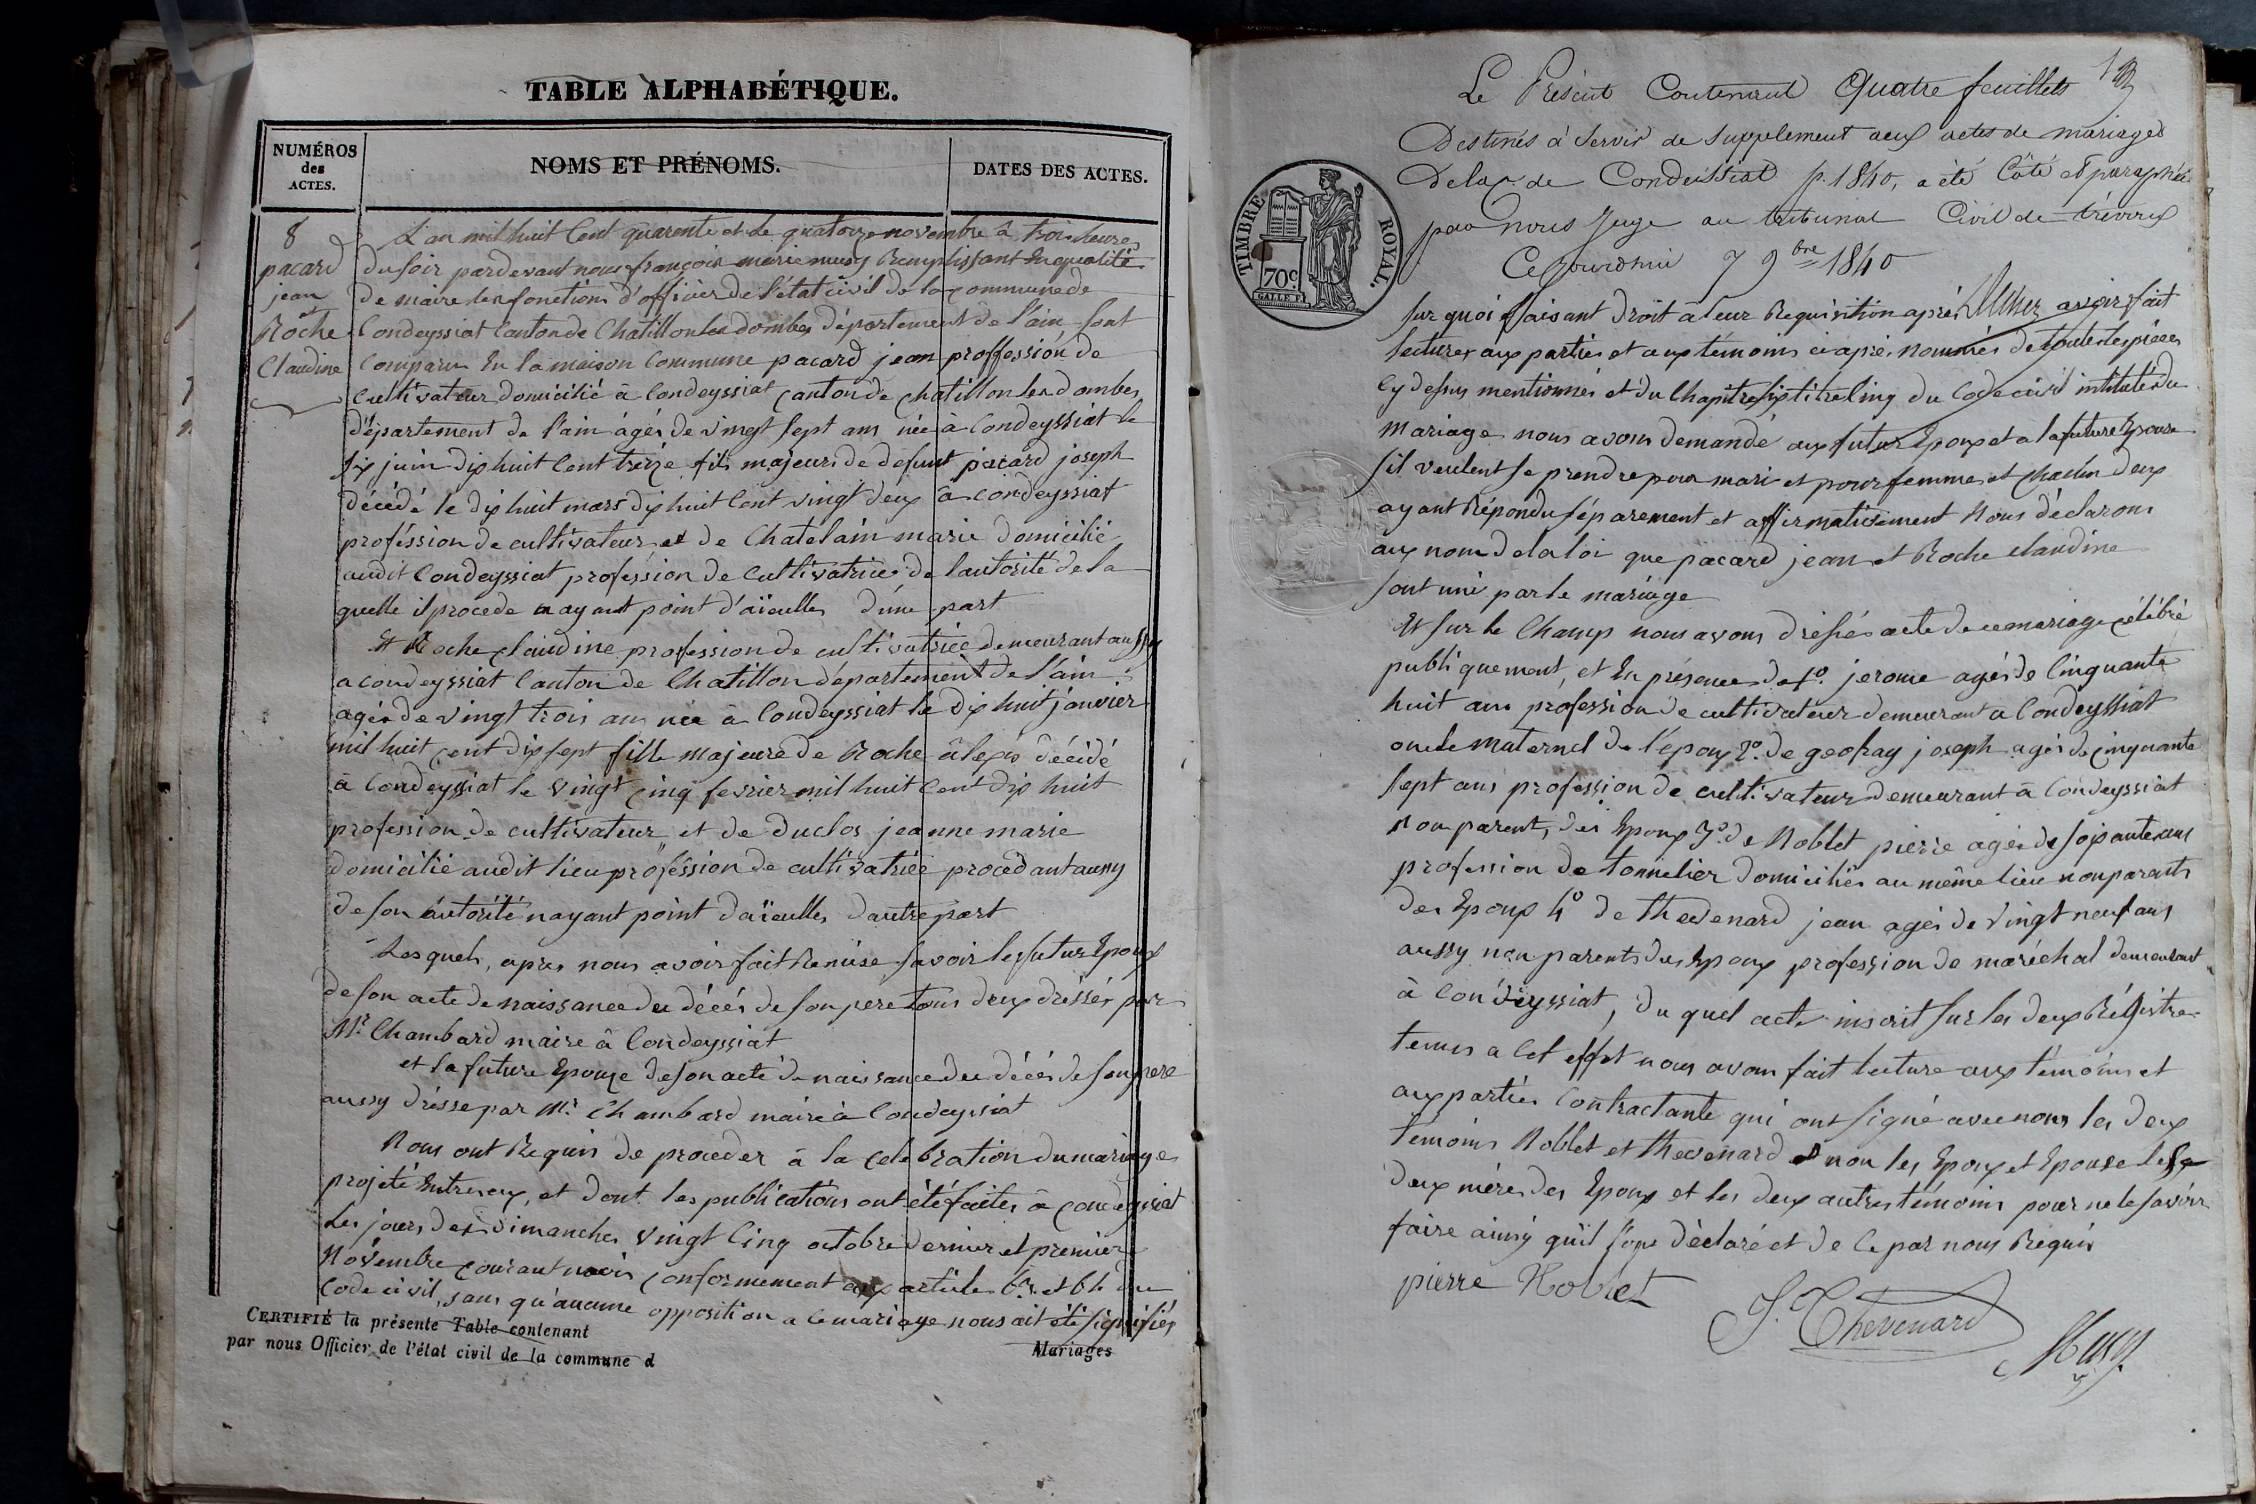 TABLE ALPHABÉTIQUE.
NUMÉROS
des
ACTES.
NOMS ET PRÉNOMS.
DATES DES ACTES.
8
pacard
jean
Roche
Claudine
L'an mil huit Cent quarente et le quatorze novembre à trois heures
du soir pardevant nous françois marie musy Remplissant En qualité
de maire les fonctions d'officier de l'état civil de la commune de
Condeyssiat Canton de Chatillon les dombes département de l'ain, sont
Comparu En la maison Commune pacard jean proffession de
Cultivateur domicilié à Condeyssiat Canton de Chatillon les dombes
département de l'ain âgés de vingt sept ans née à Condeyssiat le
six juin dix huit Cent treize fils majeurs de defunt pacard joseph
décédé le dix huit mars dix huit Cent vingt deux à Condeyssiat
profession de cultivateur et de Chatelain marie domicilié
audit Condeyssiat profession de Cultivatrice de lautorité de la
quelle il procede nayant point d'aïeulles d'une part
Et Roche claudine profession de cultivatrice demeurant aussy
a condeyssiat Canton de Chatillon département de l'ain
agés de vingt trois ans née à Condeyssiat le dix huit janvier
mil huit cent dix sept fille majeure de Roche âlexis décédé
à Condeyssiat le vingt cinq fevrier mil huit Cent dix huit
profession de cultivateur et de Duclos jeanne marie
domicilié audit lieu profession de cultivatrice procédant aussy
de son autorité nayant point d'aïeulles d'autre part
Lesquels, apres nous avoir fait Remise savoir les futur Epoux
de son acte de naissance du décés de son pere tous deux dréssés par
Mr Chambard maire à Condeyssiat
et la future Epouse de son acte de naissance du décés de son pere
aussy drésse par Mr Chambard maire à Condeyssiat
Nous ont Requis de proceder à la celebration du mariage
projété Entre eux, et dont les publications ont été faites à Condeyssiat
Les jours des dimanches vingt Cinq octobre dernier et premier
Novembre courant conformement aux article 63 et 64 du
Code civil, sans qu'aucune opposition a ce mariage nous ait été signifiés
CERTIFIÉ la présente Table contenant
par nous Officier de l'état civil de la commune d
Mariages
Le Présent Contenant Quatre feuillets
Destinés à Servir de Supplement aux actes de mariages
De la Cne de Condeissiat p. 1840, a été Côté et paraphée
par nous Juge au tribunal Civil de trévoux
Ce jourdhui 7 9bre 1840
TIMBRE ROYAL.
70c
Sur quoi faisant droit à leur Requisition aprés avoir fait
lecture aux parties et aux témoins ci aprés nommés de toutes les pièces
Cy dessus mentionnés et du Chapitre six titre Cinq du Code civil intitulé du
Mariage nous avons demandé aux futur Epoux et a la future Epouse
s'il veulent se prendre pour mari et pour femme et chacun deux
ayant Répondu séparement et affirmativement Nous déclarons
aux nom de la loi que pacard jean et Roche claudine
sont uni par le mariage
Et sur le Champ nous avons dréssés acte de ce mariage célébré
publiquement, et En présence de 1o. jerome agés de Cinquante
huit ans profession de cultivateur demeurant a Condeyssiat
oncle maternel de l'époux 2o. de geofray joseph agés de cinquante
sept ans profession de cultivateur demeurant à Condeyssiat
Non parent, des Epoux 3o. de Noblet pierre agés de soixante ans
profession de tonnelier domiciliés au même lieu non parents
des Epoux 4o de thevenard jean agés de vingt neuf ans
aussy non parents des Epoux profession de maréchal demeurant
à Condeyssiat, du quel acte inscrit sur les deux Régistre
tenus a cet effet nous avons fait lecture aux témoins et
aux parties Contractante qui ont signé avec nous les deux
témoins Noblet et thevenard et non les Epoux et Epouse les
deux mères des Epoux et les deux autres témoins pour ne le savoir
faire ainsy qu'il l'ont déclaré et de Ce par nous Requis
pierre Noblet
J. Thevenard
Musy